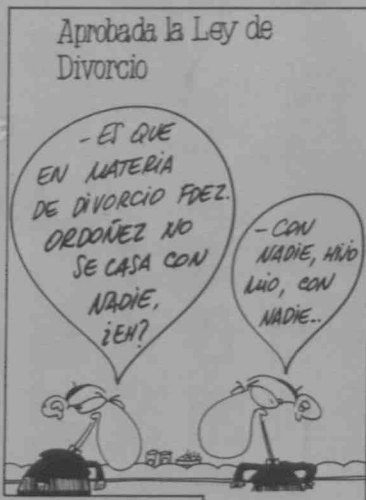 Aprobada la Ley de
Divorcio
- ES QUE
EN MATERIA
DE DIVORCIO FDEZ.
ORDOÑEZ NO
SE CASA CON
NADIE,
¿EH?
- CON
NADIE, HIJO
MIO, CON
NADIE...